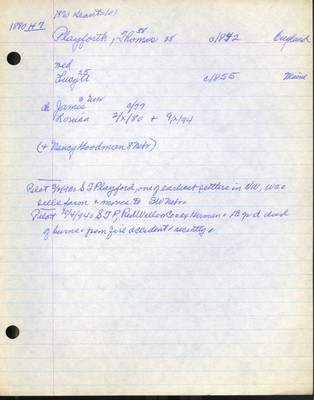 1880 H 7
Playforth, Thomas 38 c1842 England
med
Lucy A 25 c1855 Maine
ch James 3 Nebr 9/77
Louisa 2/x/80 + 9/x/94
(+ Nancy Hoodman 8 Nebr)
S T Playford, one of earliest settlers in NW, was
sells farm + moves to SW Nebr.
S T P, Red Willow Co, ex Herman. 1B yr d died
of burns from fire accident recently.